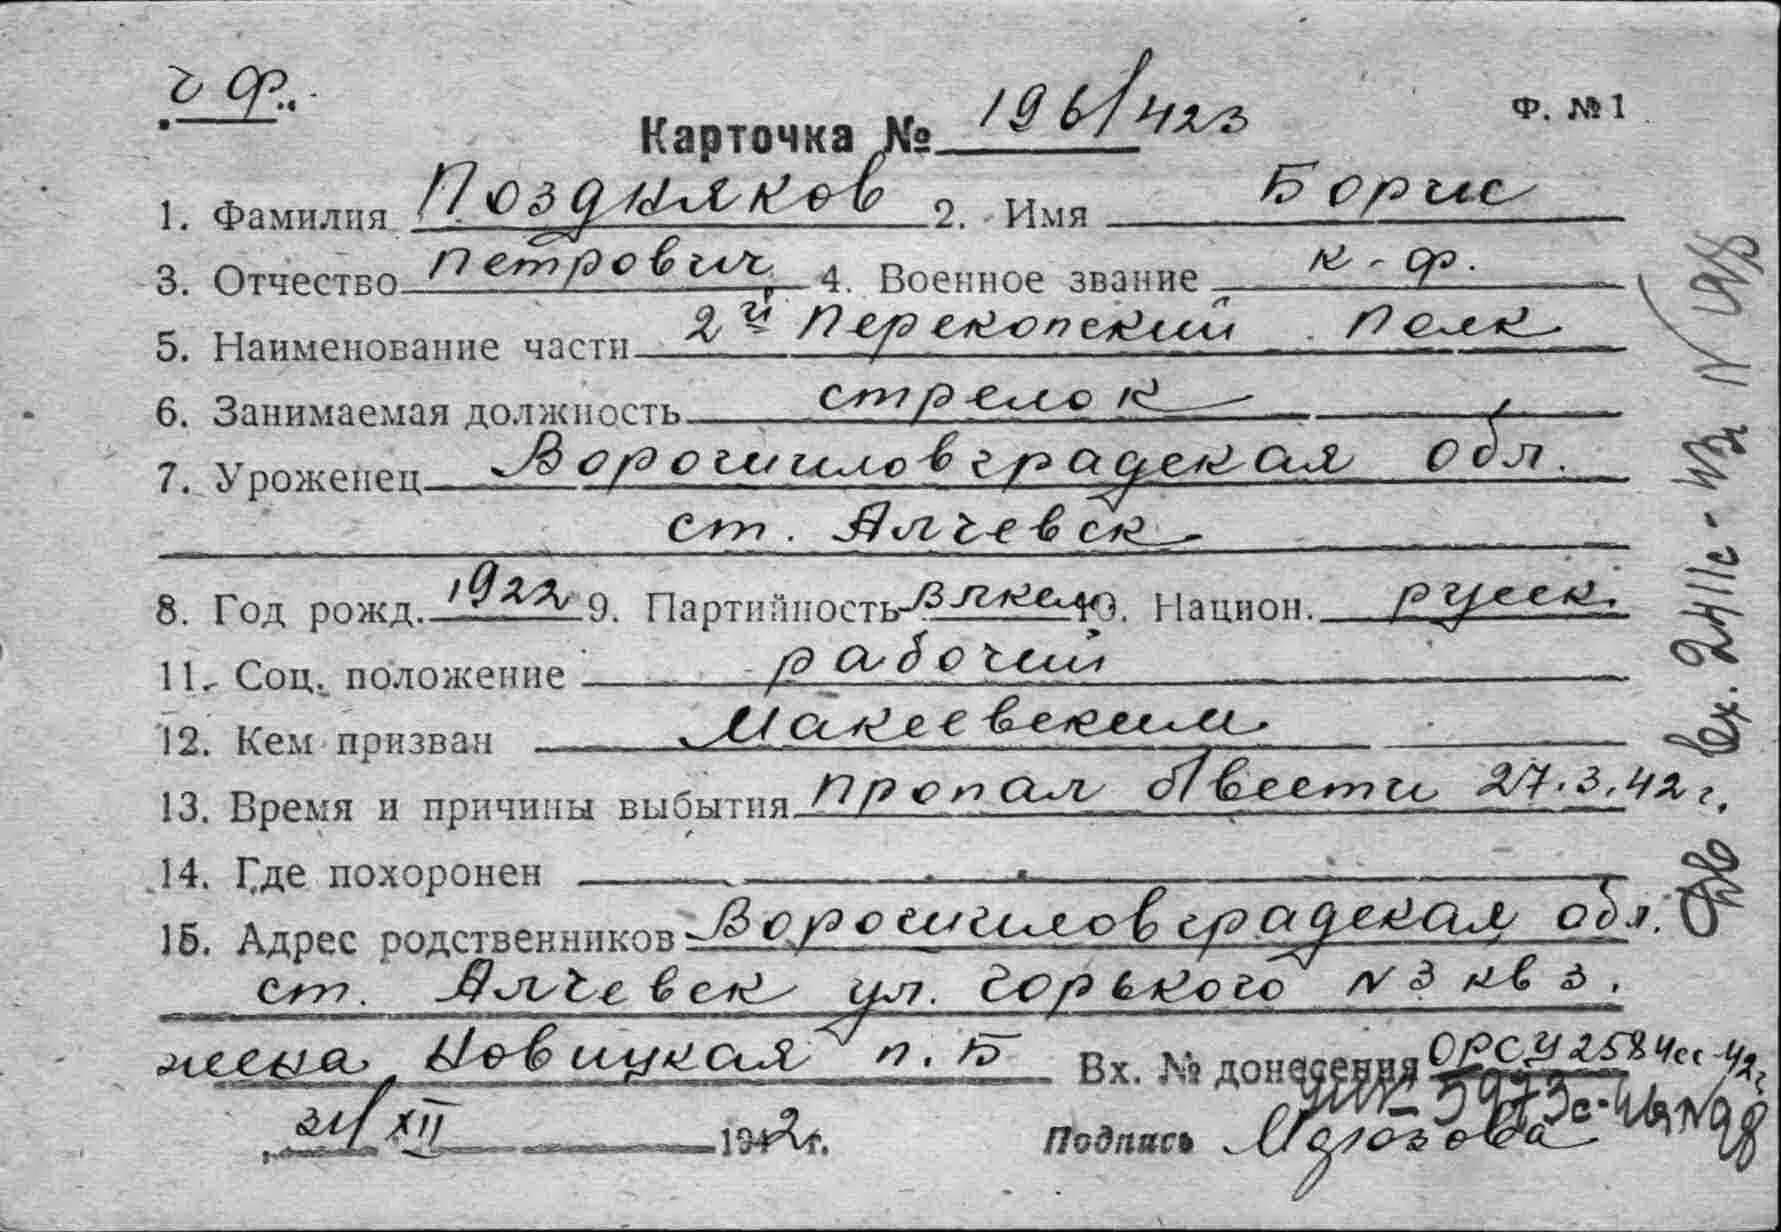 ч ф.
Ф. №1
Карточка № 196/423
1. Фамилия Поздняков 2. Имя Борис
3. Отчество Петрович 4. Военное звание к-ф.
5. Наименование части 2й Перекопский Полк
6. Занимаемая должность стрелок
7. Уроженец Ворошиловградская обл.
ст. Алчевск
8. Год рожд. 1922 9. Партийность ВЛКСМ 10. Национ. русск.
11. Соц. положение рабочий
12. Кем призван Макеевским
13. Время и причины выбытия пропал б/вести 27.3.42 г.
14. Где похоронен
15. Адрес родственников Ворошиловградская обл.
ст. Алчевск ул. Горького N 3 кв 3.
жена Новицкая П. Б Вх. № донесения ОРСУ 2584сс-42г
31/XII 1942г.
Подпись
вх. 2411с-